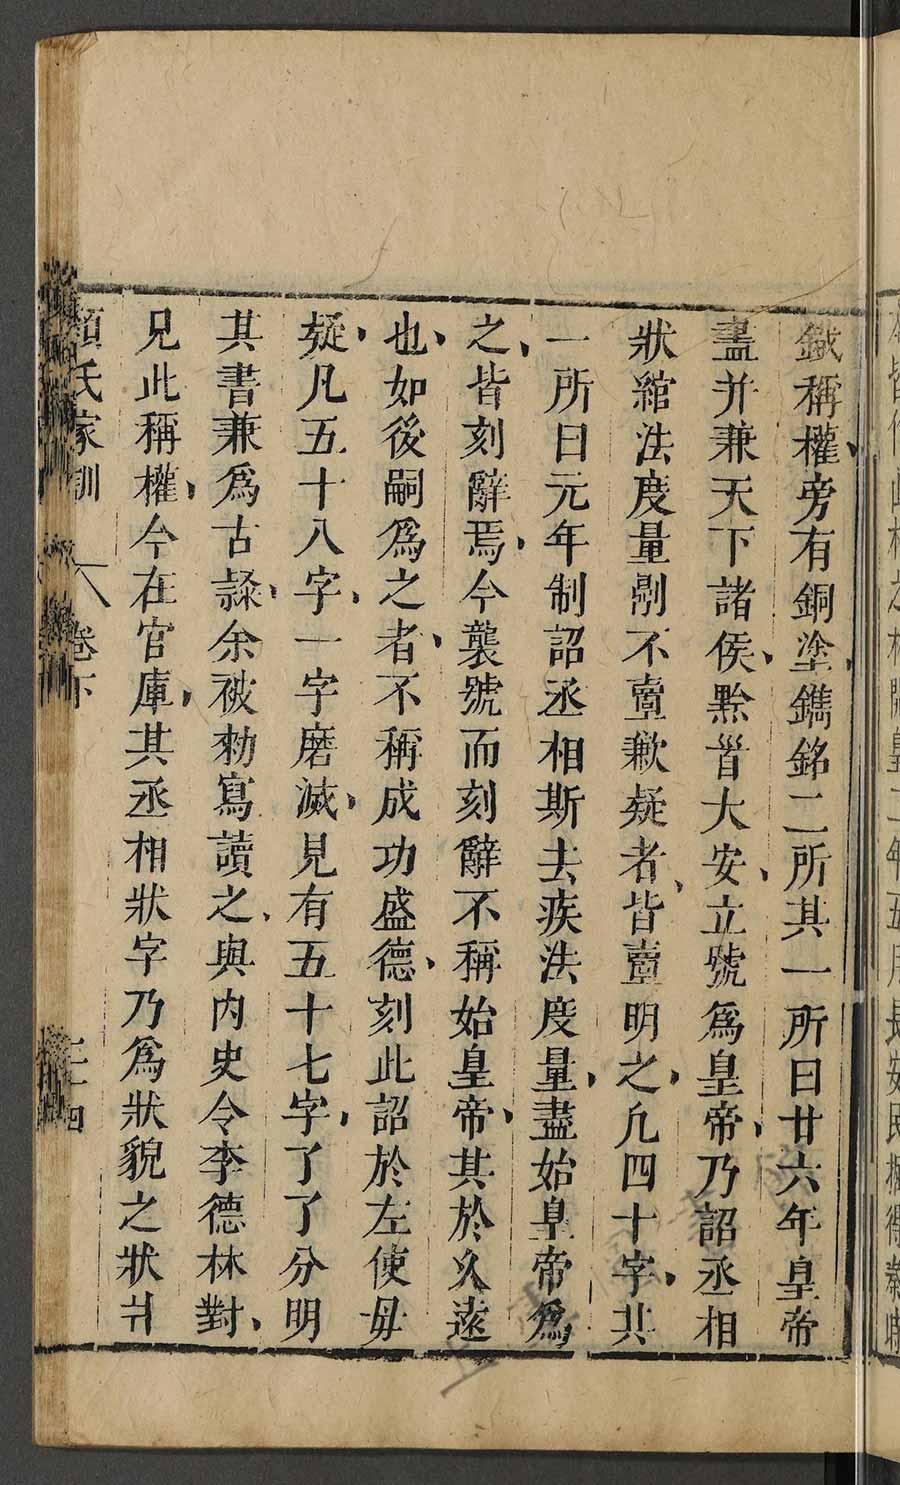 鐵稱權旁有銅塗鐫銘二所其一所曰廿六年皇帝
盡并兼天下諸侯黔首大安立號爲皇帝乃詔丞相
狀綰法度量劑不壹歉疑者皆壹明之凡四十字其
一所曰元年制詔丞相斯去疾法度量盡始皇帝爲
之皆刻辭焉今襲號而刻辭不稱始皇帝其於久遠
也如後嗣爲之者不稱成功盛德刻此詔於左使毋
疑凡五十八字一字磨滅見有五十七字了了分明
其書兼爲古隸余被勑寫讀之與内史令李德林對
見此稱權今在官庫其丞相狀字乃爲狀貌之狀爿
顏氏家訓 卷下